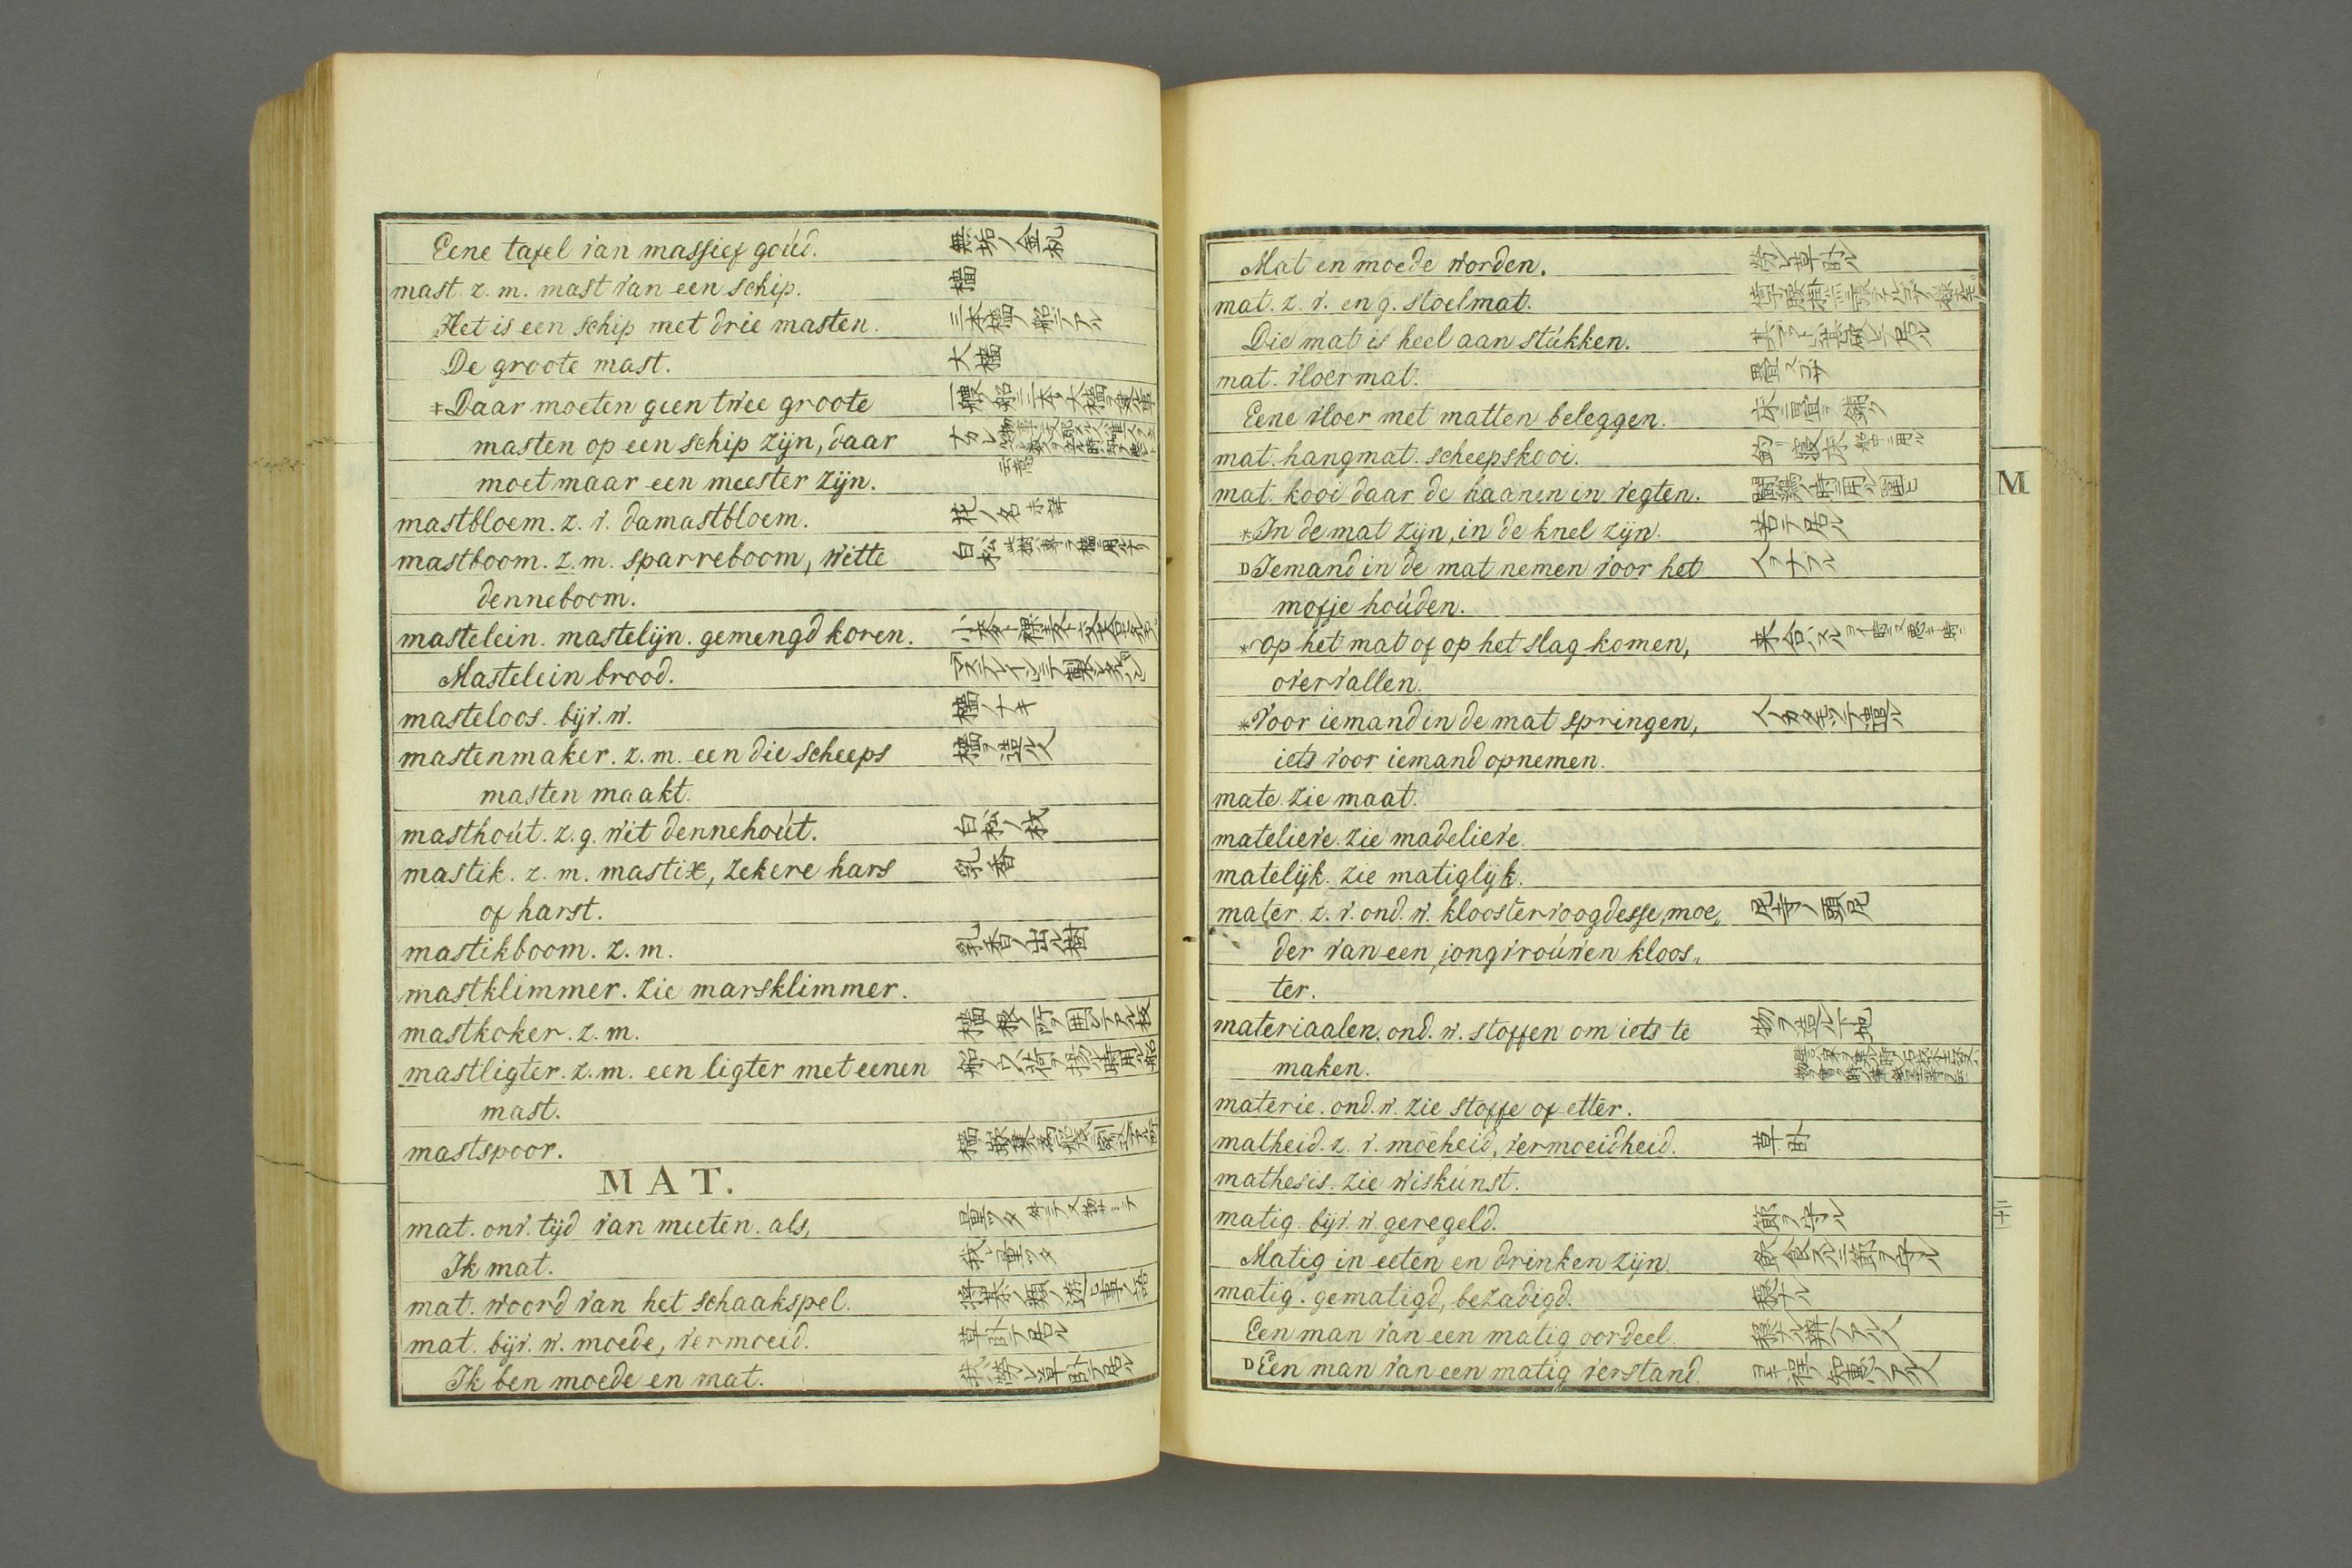 Eene tafel van massief goúd. 無垢ノ金札
mast z. m. mast van een schip. 檣
Het is een schip met drie masten. 三本檣ノ船デアル
De groote mast. 大檣
*Daar moeten geen twee groote
masten op een schip zijn, daar
moet maar een meester zijn.
mastbloem. z. v. damastbloem. 花ノ名
mastboom. z. m. sparreboom, witte 白松
denneboom.
mastelein. mastelijn. gemengd koren.
Mastelein brood.
masteloos. bijv. w. 檣ノナキ
mastenmaker. z. m. een die scheeps 檣ヲ造ル人
masten maakt.
masthoút. z. g. wit dennehoút. 白松ノ材
mastik. z. m. mastix, zekere hars 乳香
of harst.
mastikboom. z. m. 乳香ノ出ル樹
mastklimmer. zie marsklimmer.
mastkoker. z. m.
mastligter. z. m. een ligter met eenen
mast.
mastspoor.
MAT.
mat. onv. tijd van meeten. als, 量ツタ
Ik mat. 我レ量ツタ
mat. woord van het schaakspel.
mat. bijv. w. moede, vermoeid. 草臥テ居ル
Ik ben moede en mat. 我レ労レ草臥テ居ル
Mat en moede worden. 労レ草臥ル
mat. z. v. en g. stoelmat.
Die mat is heel aan stúkken.
mat. vloermat. 畳
Eene vloer met matten beleggen. 床ニ畳ヲ鋪ク
mat. hangmat. scheepskooi. 釣リ寝床
mat. kooi daar de haanen in vegten.
*In de mat zijn, in de knel zijn. 苦テ居ル
D Iemand in de mat nemen voor het
mofje hoúden.
*op het mat of op het slag komen,
overvallen.
*Voor iemand in de mat springen,
iets voor iemand opnemen.
mate. zie maat.
mateliere. zie madeliere.
matelijk. zie matiglijk.
mater. z. v. ond. w. kloostervoogdesse, moe„ 尼寺ノ頭尼
der van een jongvroúwen kloos„
ter.
materiaalen. ond. w. stoffen om iets te 物ヲ造ル下地
maken.
materie. ond. w. zie stoffe of etter.
matheid. z. v. moeheid, vermoeidheid. 草臥
mathesis. zie wiskúnst.
matig. bijv. w. geregeld. 節ヲ守ル
Matig in eeten en drinken zijn 飲食スルニ節ヲ守ル
matig. gematigd, bezadigd. 穏ナル
Een man van een matig oordeel.
D Een man van een matig verstand.
M